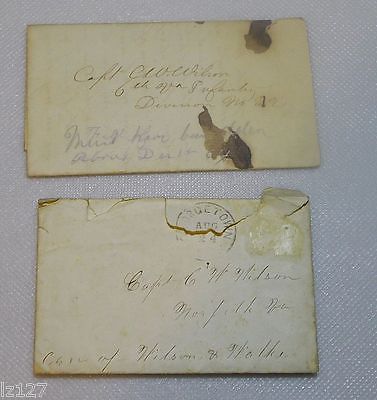 Capt C W Wilson
6th Va Infantry
Division No
Must Have been
About Dec 1st
GEORGETOWN
AUG
24
Capt C W Wilson
Norfolk Va
Care of Wilson &
lz127